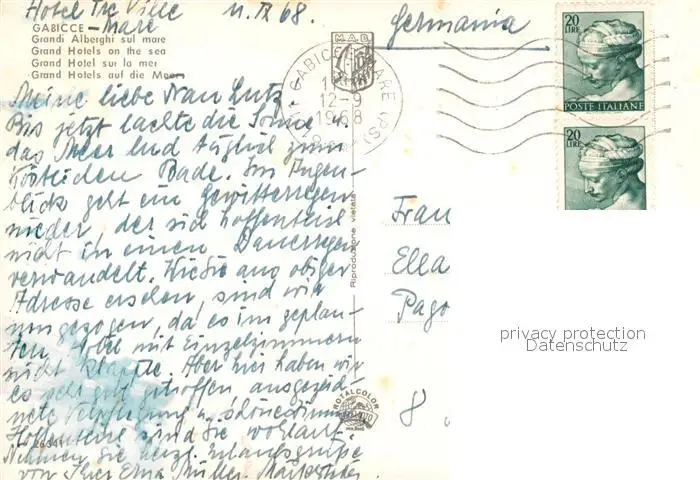 Hotel Tre Ville 11.IX 68.
GABICCE - Mare
Grandi Alberghi sul mare
Grand Hotels on the sea
Grand Hotel sur la mer
Grand Hotels auf die Meer
Germania
GABICCE MARE (PS)
12-9
1968
20 LIRE
POSTE ITALIANE
20 LIRE
Meine liebe Frau Lutz.
Bis jetzt lachte die Sonne u.
das Meer lud täglich zum
köstlichen Bade. Im Augen-
blick geht ein Gewitterregen
nieder, der sich hoffentlich
nicht in einen Dauerregen
verwandelt. Wie Sie aus obiger
Adresse ersehen, sind wir
umgezogen, da es im geplan-
ten Hotel mit Einzelzimmern
nicht klappte. Aber hier haben wir
es sehr gut getroffen ausgezeich-
nete Verpflegung u. schöne Zimmer
Hoffentlich sind Sie wohlauf.
Nehmen Sie herzl. Urlaubsgrüße
von Ihrer Erna Müller.
Riproduzione vietata
Frau
Ella
Pago
8
ROTALCOLOR
privacy protection
Datenschutz